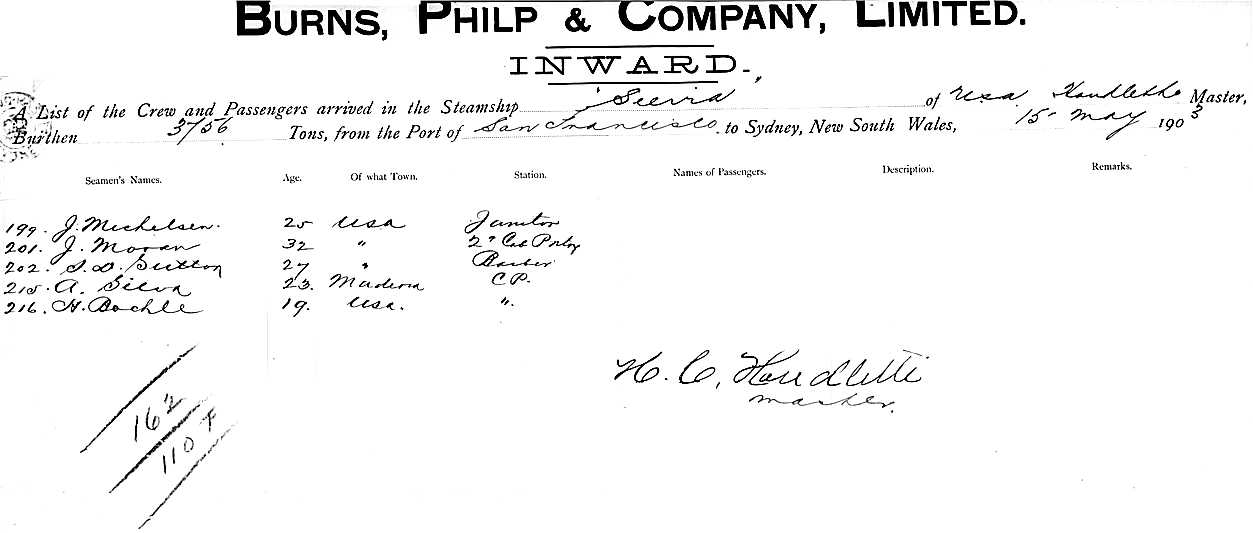 BURNS, PHILP & COMPANY, LIMITED.
INWARD.
A List of the Crew and Passengers arrived in the Steamship Sierra of Usa Houdlette Master,
Burthen 3756 Tons, from the Port of San Francisco to Sydney, New South Wales, 15 May 1903
Seamen's Names. Age. Of what Town. Station. Names of Passengers. Description. Remarks.
199. J. Michelsen. 25 Usa Janitor
201. J. Moran 32 " 2d Cab Porter
202. S. D. Sutton 27 " Barber
215. A. Silva 23. Madeira C P.
216. H. Bochle 19. Usa. ".
H. C. Houdlette
master.
162
110 F